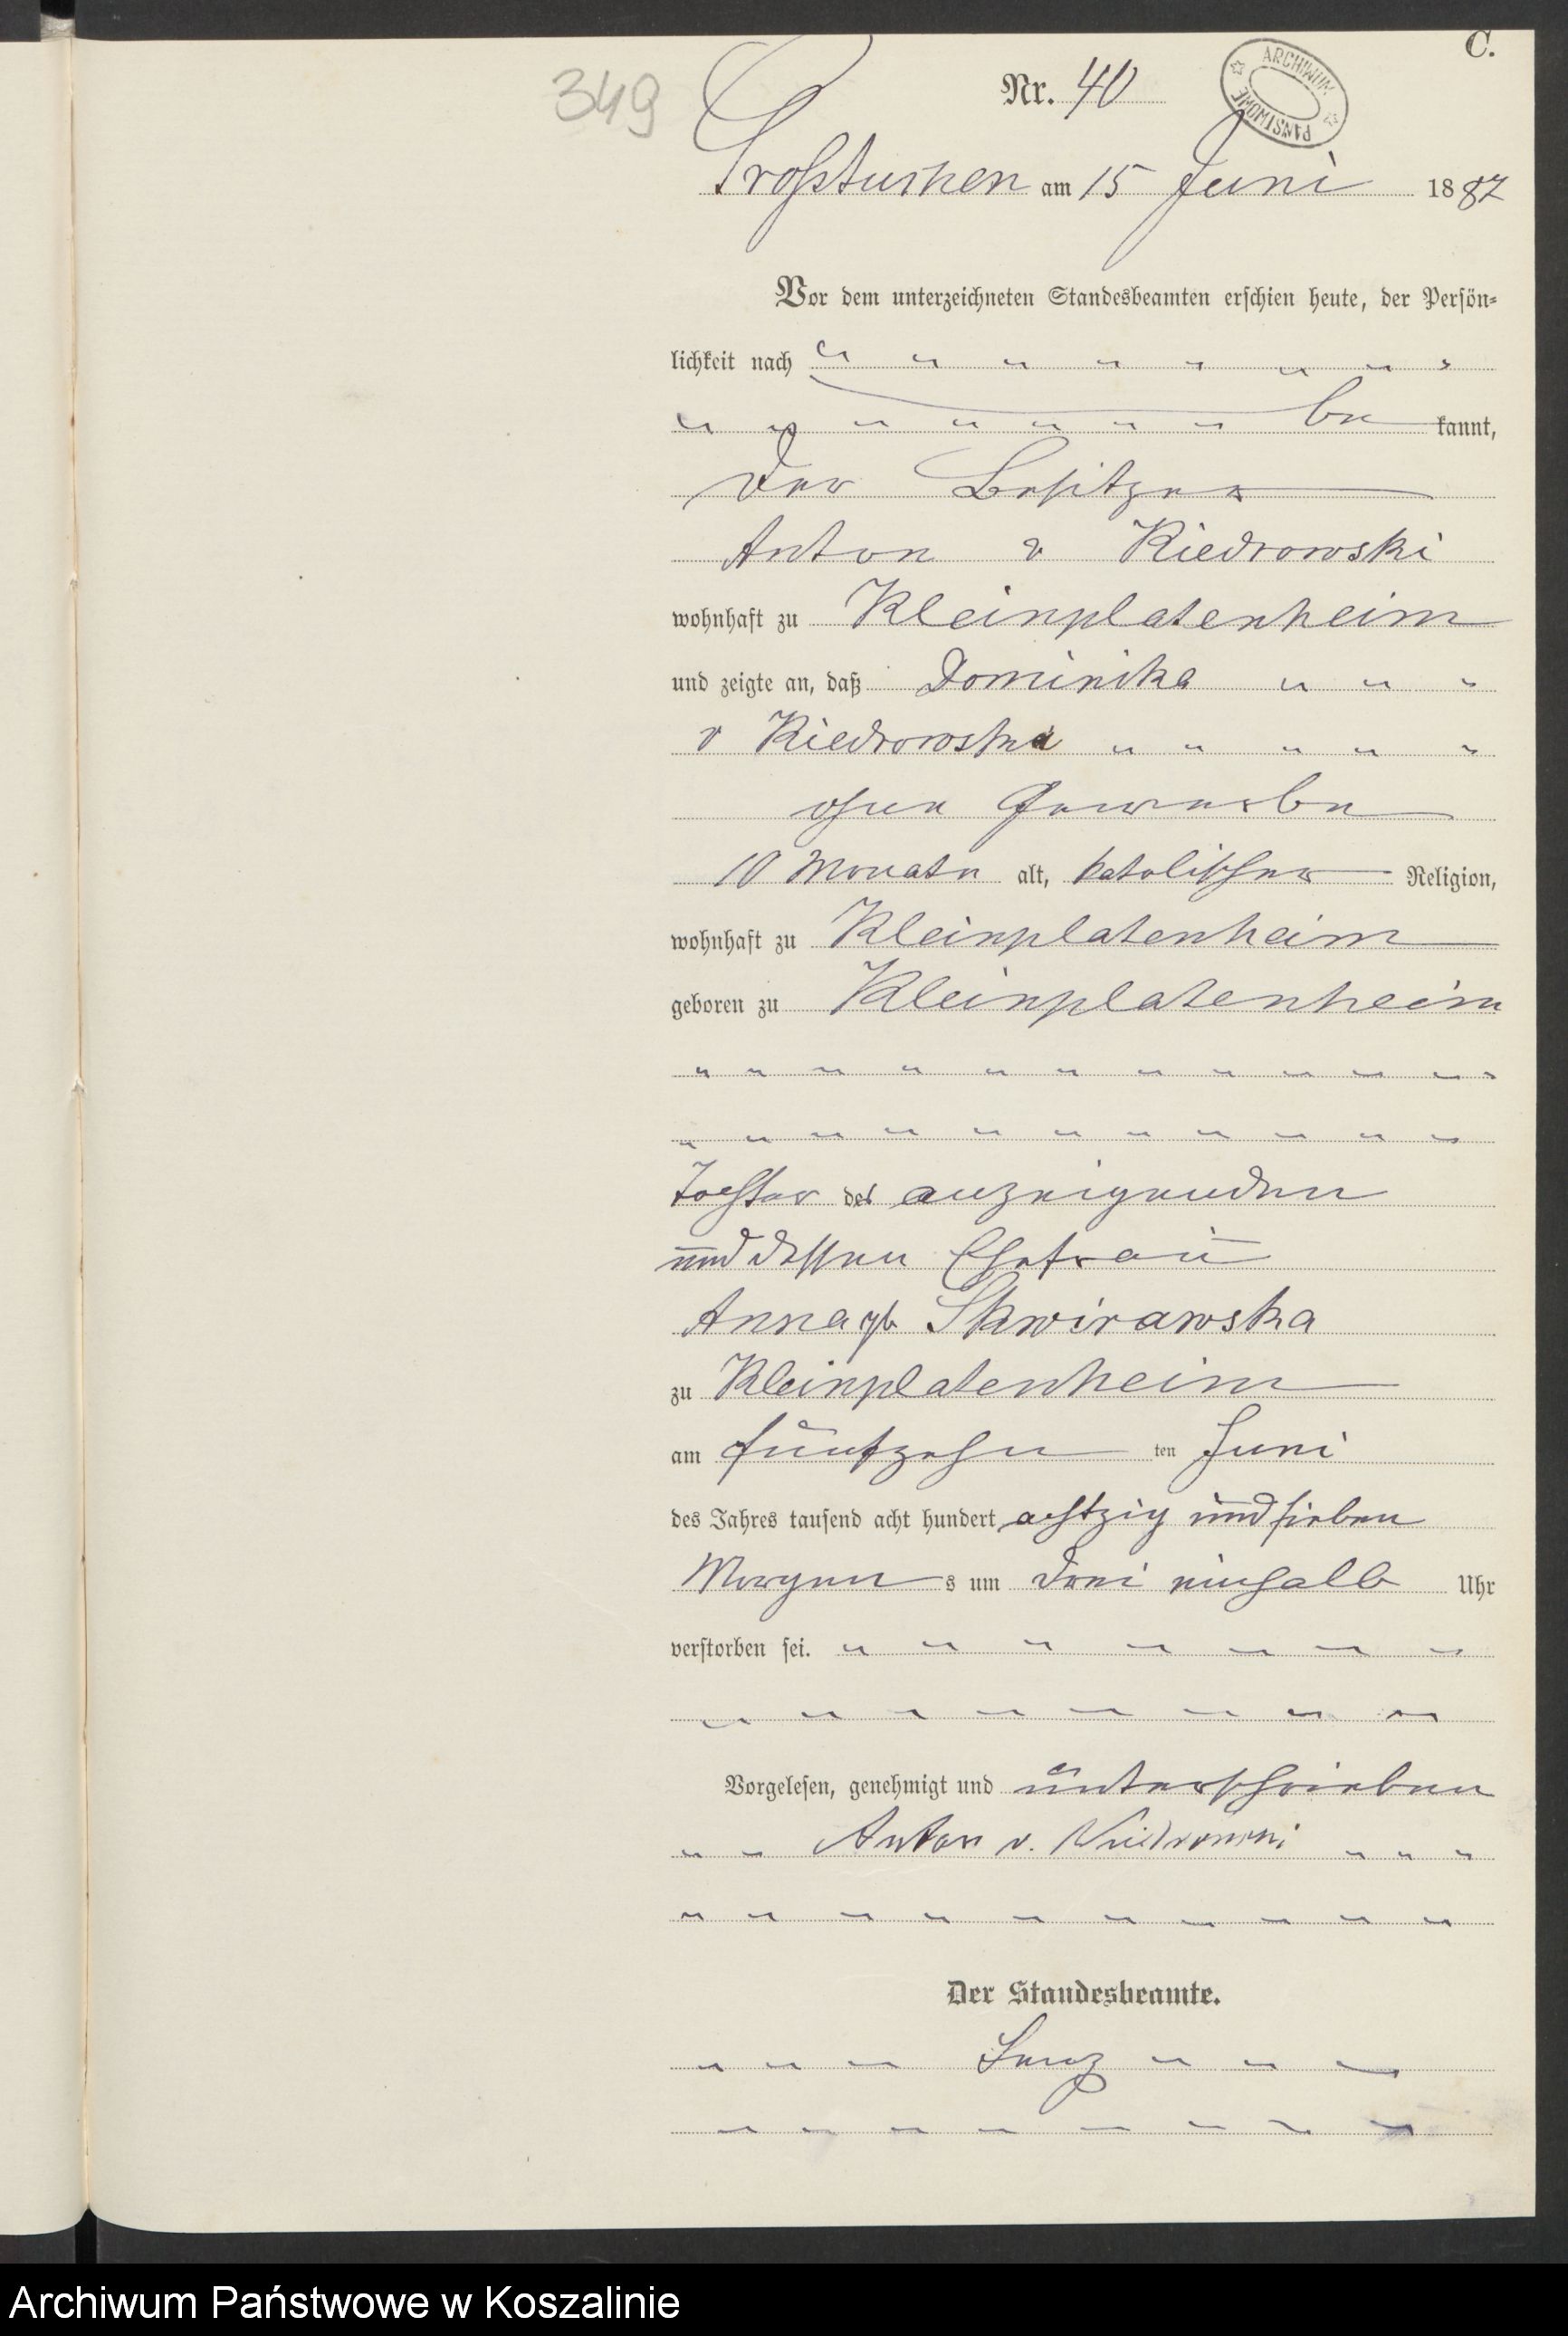 C.
349
Nr. 40
ARCHIWUM PAŃSTWOWE
Großtuchen am 15 Juni 1887
Vor dem unterzeichneten Standesbeamten erschien heute, der Persön=
lichkeit nach
be kannt,
der Besitzer
Anton v Kiedrowski
wohnhaft zu Kleinplatenheim
und zeigte an, daß Dominika
v Kiedrowska
ohne Gewerbe
10 Monate alt, katolischer Religion,
wohnhaft zu Kleinplatenheim
geboren zu Kleinplatenheim
Tochter des anzeigenden
und dessen Ehefrau
Anna gb Skwirawska
zu Kleinplatenheim
am fünfzehn ten Juni
des Jahres tausend acht hundert achtzig und sieben
Morgen s um drei einhalb Uhr
verstorben sei.
Vorgelesen, genehmigt und unterschrieben
Anton v. Kiedrowski
Der Standesbeamte.
Archiwum Państwowe w Koszalinie